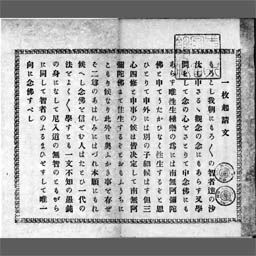 一枚起請文
もろこし我朝にもろ〳〵の智者達の沙
汰し申さるゝ觀念の念にもあらず又學
問をして念の心をさとりて申念佛にも
あらず唯往生極樂の爲には南無阿彌陀
佛と申てうたがひなく往生するぞと思
ひとりて申外には別の子細候はず但三
心四修と申事の候は皆決定して南無阿
彌陀佛にて往生するぞとおもふうちに
こもり候なり此外に奧ふかき事を存ぜ
ば二尊のあはれみにはづれ本願にもれ
候べし念佛を信ぜん人はたとひ一代の
法をよく〳〵學すとも一文不知の愚鈍
の身になして尼入道の無智のともがら
に同して智者のふるまひをせずして唯一
向に念佛すべし